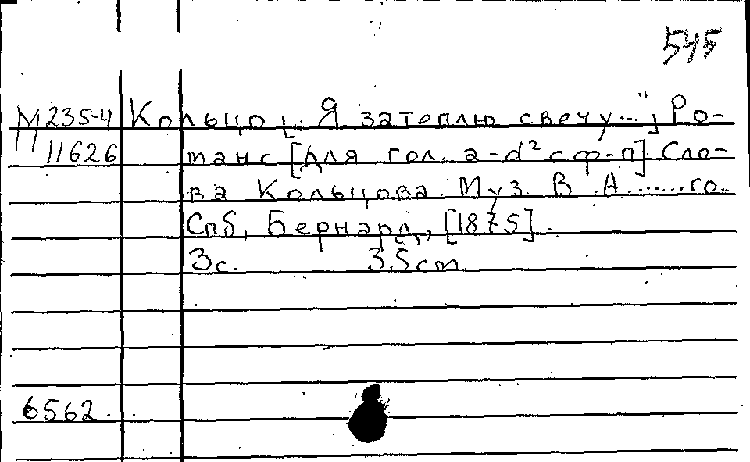 545
М 235-4 Кольцо [„Я затеплю свечу..."] Ро-
11626 манс [для гол. a-d² с ф-п] Сло-
ва Кольцова. Муз. В. А.......го
Спб, Бернард, [1875].
3с. 35cm
6562